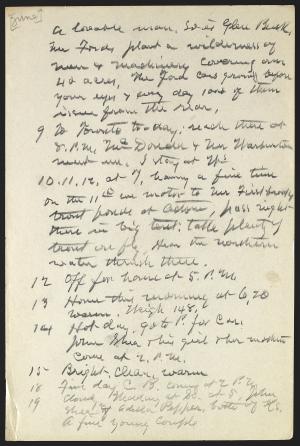 [June]
a lovable man. So is Glen Buck.
The Ford plant a wilderness of
men & machinery covering over
40 acres. The Ford cars growing before
your eyes & every day 1000 of them
issue from the rear.
9 To Toronto to-day, reach there at
5 P.M. McDonald & Mr
meet me. I stay at
10, 11, 12, at T, having a fine time
on the 11th we motor to
trout ponds at pass night
there in big tent. table plenty of
trout on fly. Hear the northern
water thrush there.
12 Off for home at 5. P.M.
13 Home this morning at 6,20
warm. Weigh 148,
14 Hot day. Go to P. for Car.
John Shea & his girl & her mother
come at 2. P.M.
15 Bright, clear, warm
18 Fine day C.B. comes at 2 P.M.
19 Cloudy, at at 5. John
Shea & Pepper, both of
A fine young couple